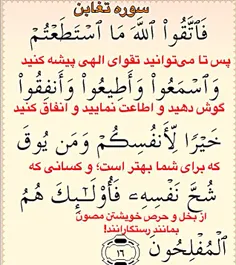 سوره تغابن
فَٱتَّقُوا۟ ٱللَّهَ مَا ٱسْتَطَعْتُمْ
پس تا می‌توانید تقوای الهی پیشه کنید
وَٱسْمَعُوا۟ وَأَطِيعُوا۟ وَأَنفِقُوا۟
گوش دهید و اطاعت نمایید و انفاق کنید
خَيْرًا لِّأَنفُسِكُمْ وَمَن يُوقَ
که برای شما بهتر است؛ و کسانی که
شُحَّ نَفْسِهِۦ فَأُو۟لَٰٓئِكَ هُمُ
از بخل و حرص خویشتن مصون
بمانند رستگارانند!
ٱلْمُفْلِحُونَ ١٦